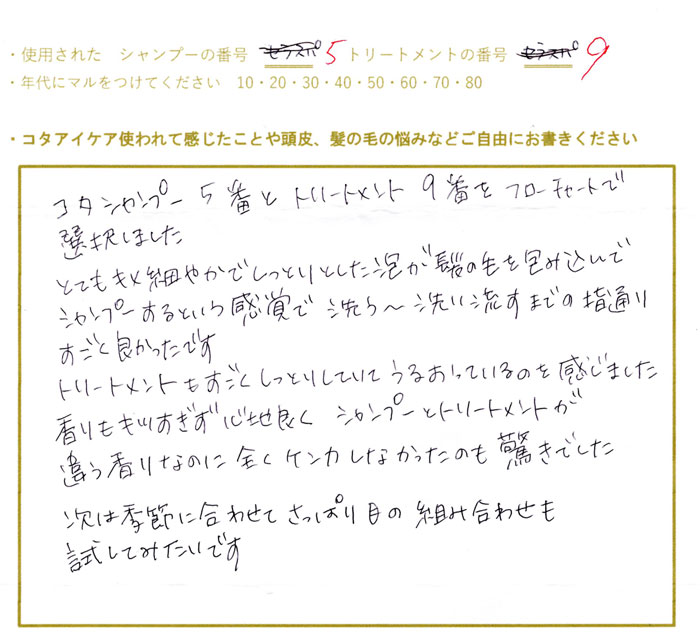 ・使用された シャンプーの番号 セラスパ 5 トリートメントの番号 セラスパ 9
・年代にマルをつけてください 10・20・30・40・50・60・70・80
・コタアイケア使われて感じたことや頭皮、髪の毛の悩みなどご自由にお書きください
コタシャンプー 5番と トリートメント 9番を フローチャートで
選択しました
とてもキメ細やかでしっとりとした泡が髪の毛を包み込んで
シャンプーするという感覚で 洗う～洗い流すまでの指通り
すごく良かったです
トリートメントもすごくしっとりしていてうるおっているのを感じました
香りもキツすぎず心地良く シャンプーとトリートメントが
違う香りなのに全くケンカしなかったのも驚きでした
次は季節に合わせてさっぱり目の組み合わせも
試してみたいです